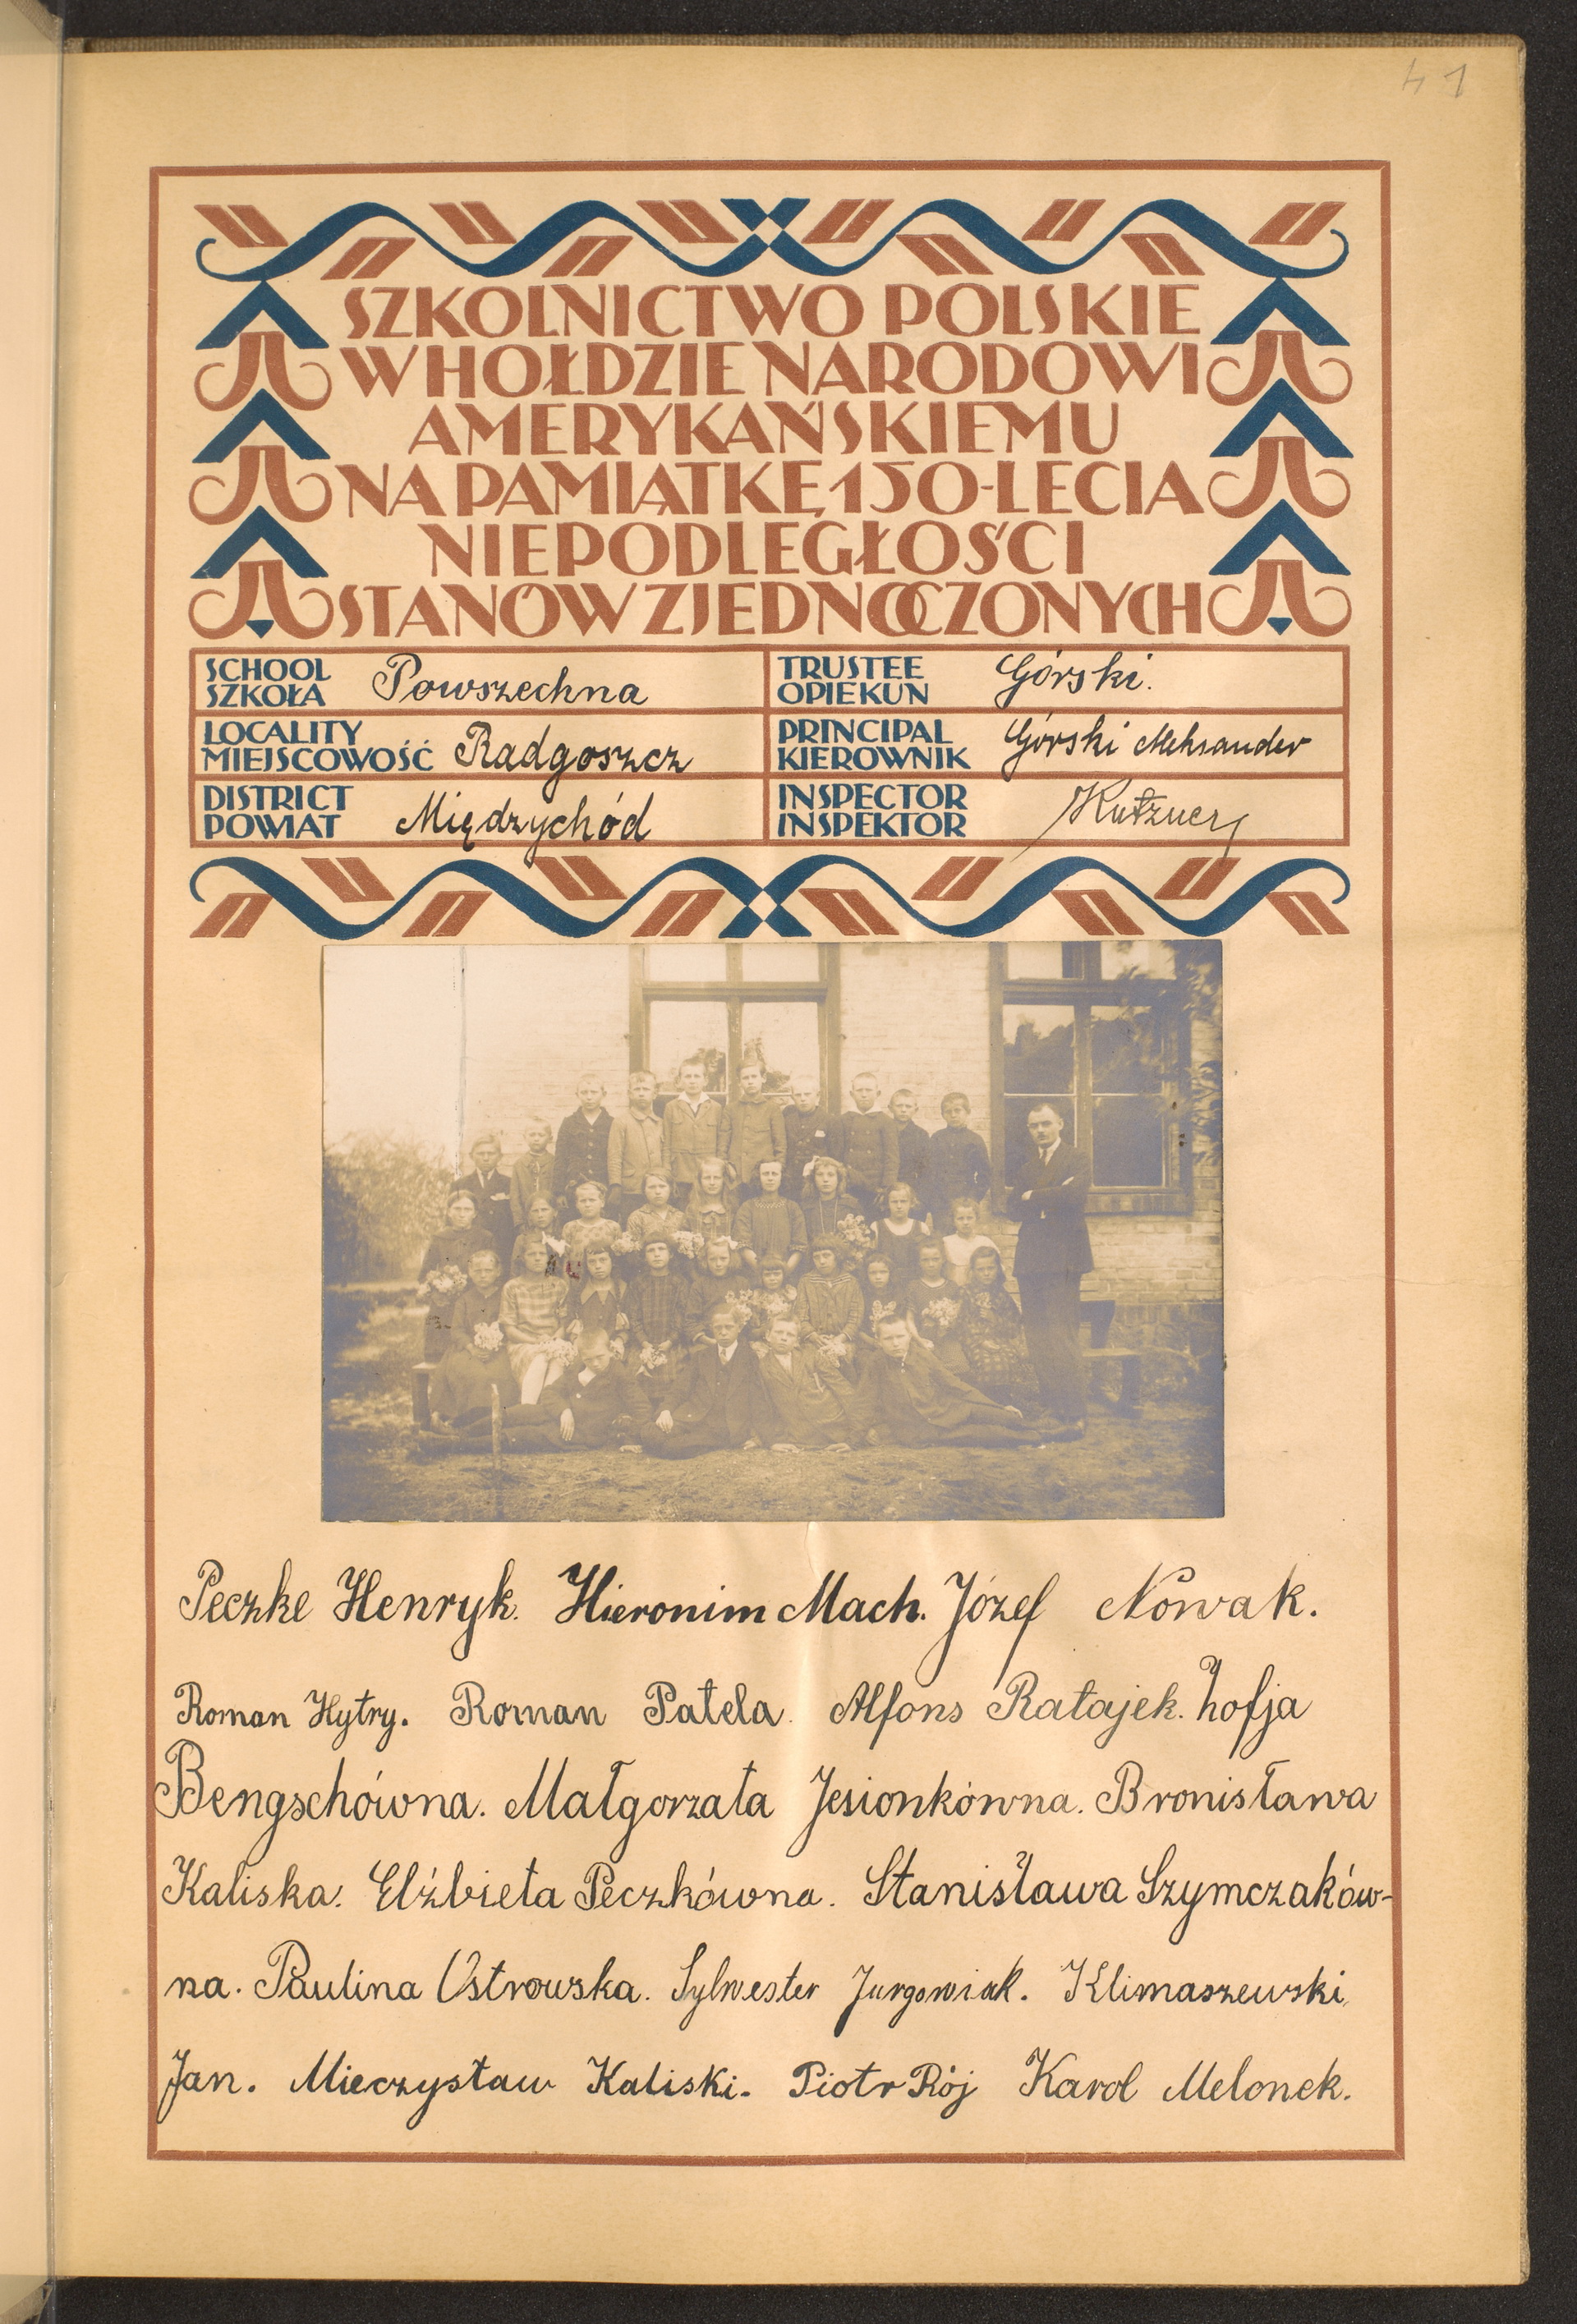 41
SZKOLNICTWO POLSKIE
W HOŁDZIE NARODOWI
AMERYKAŃSKIEMU
NA PAMIĄTKĘ 150-LECIA
NIEPODLEGŁOŚCI
STANÓW ZJEDNOCZONYCH
SCHOOL
SZKOŁA Powszechna
TRUSTEE
OPIEKUN Górski.
LOCALITY
MIEJSCOWOŚĆ Radgoszcz
PRINCIPAL
KIEROWNIK Górski Aleksander
DISTRICT
POWIAT Międzychód
INSPECTOR
INSPEKTOR
Peczke Henryk. Hieronim Mach. Józef Nowak.
Roman Hytry. Roman Patela. Alfons Ratajek. Zofja
Bengschówna. Małgorzata Jesionkówna. Bronisława
Kaliska. Elżbieta Peczkówna. Stanisława Szymczaków-
na. Paulina Ostrowska. Sylwester Jurgowiak. Klimaszewski
Jan. Mieczysław Kaliski. Piotr Rój Karol Melonek.